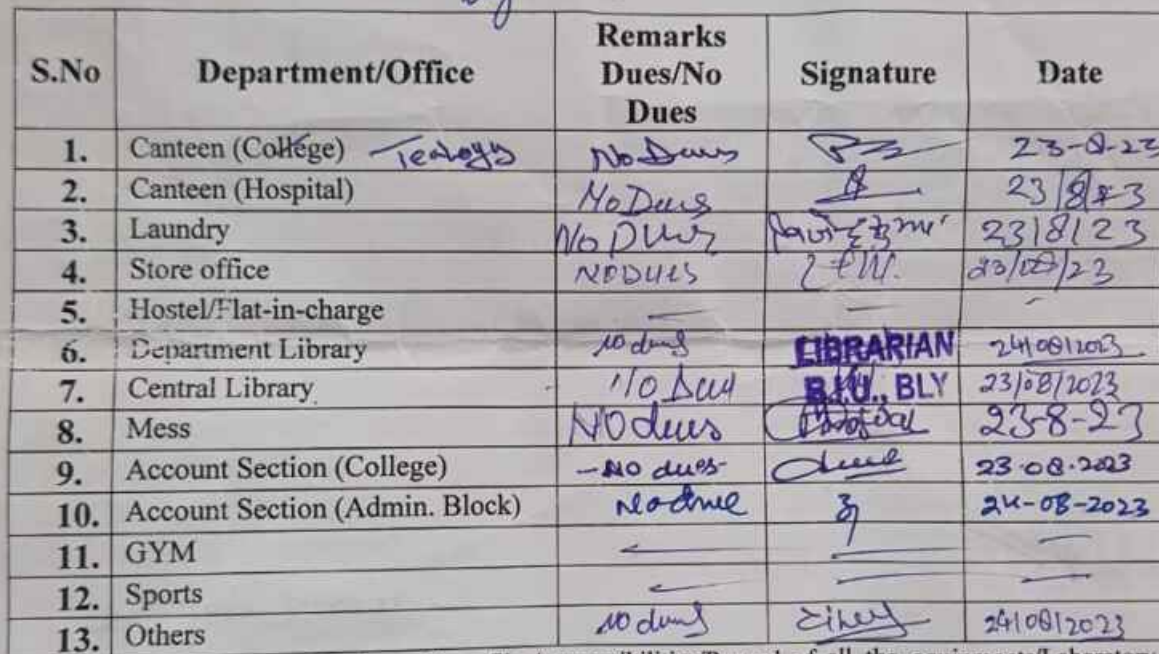 S.No Department/Office Remarks Dues/No Dues Signature Date
1. Canteen (College) Tealogy No Dues 23-8-23
2. Canteen (Hospital) No Dues 23/8/23
3. Laundry No Dues 23/8/23
4. Store office NO DUES 23/08/23
5. Hostel/Flat-in-charge — — -
6. Department Library no dues LIBRARIAN 24/08/2023
7. Central Library No Dues B.I.U., BLY 23/08/2023
8. Mess NO dues 23-8-23
9. Account Section (College) - NO dues - 23.08.2023
10. Account Section (Admin. Block) No due 24-08-2023
11. GYM — — —
12. Sports — — —
13. Others no dues 24/08/2023